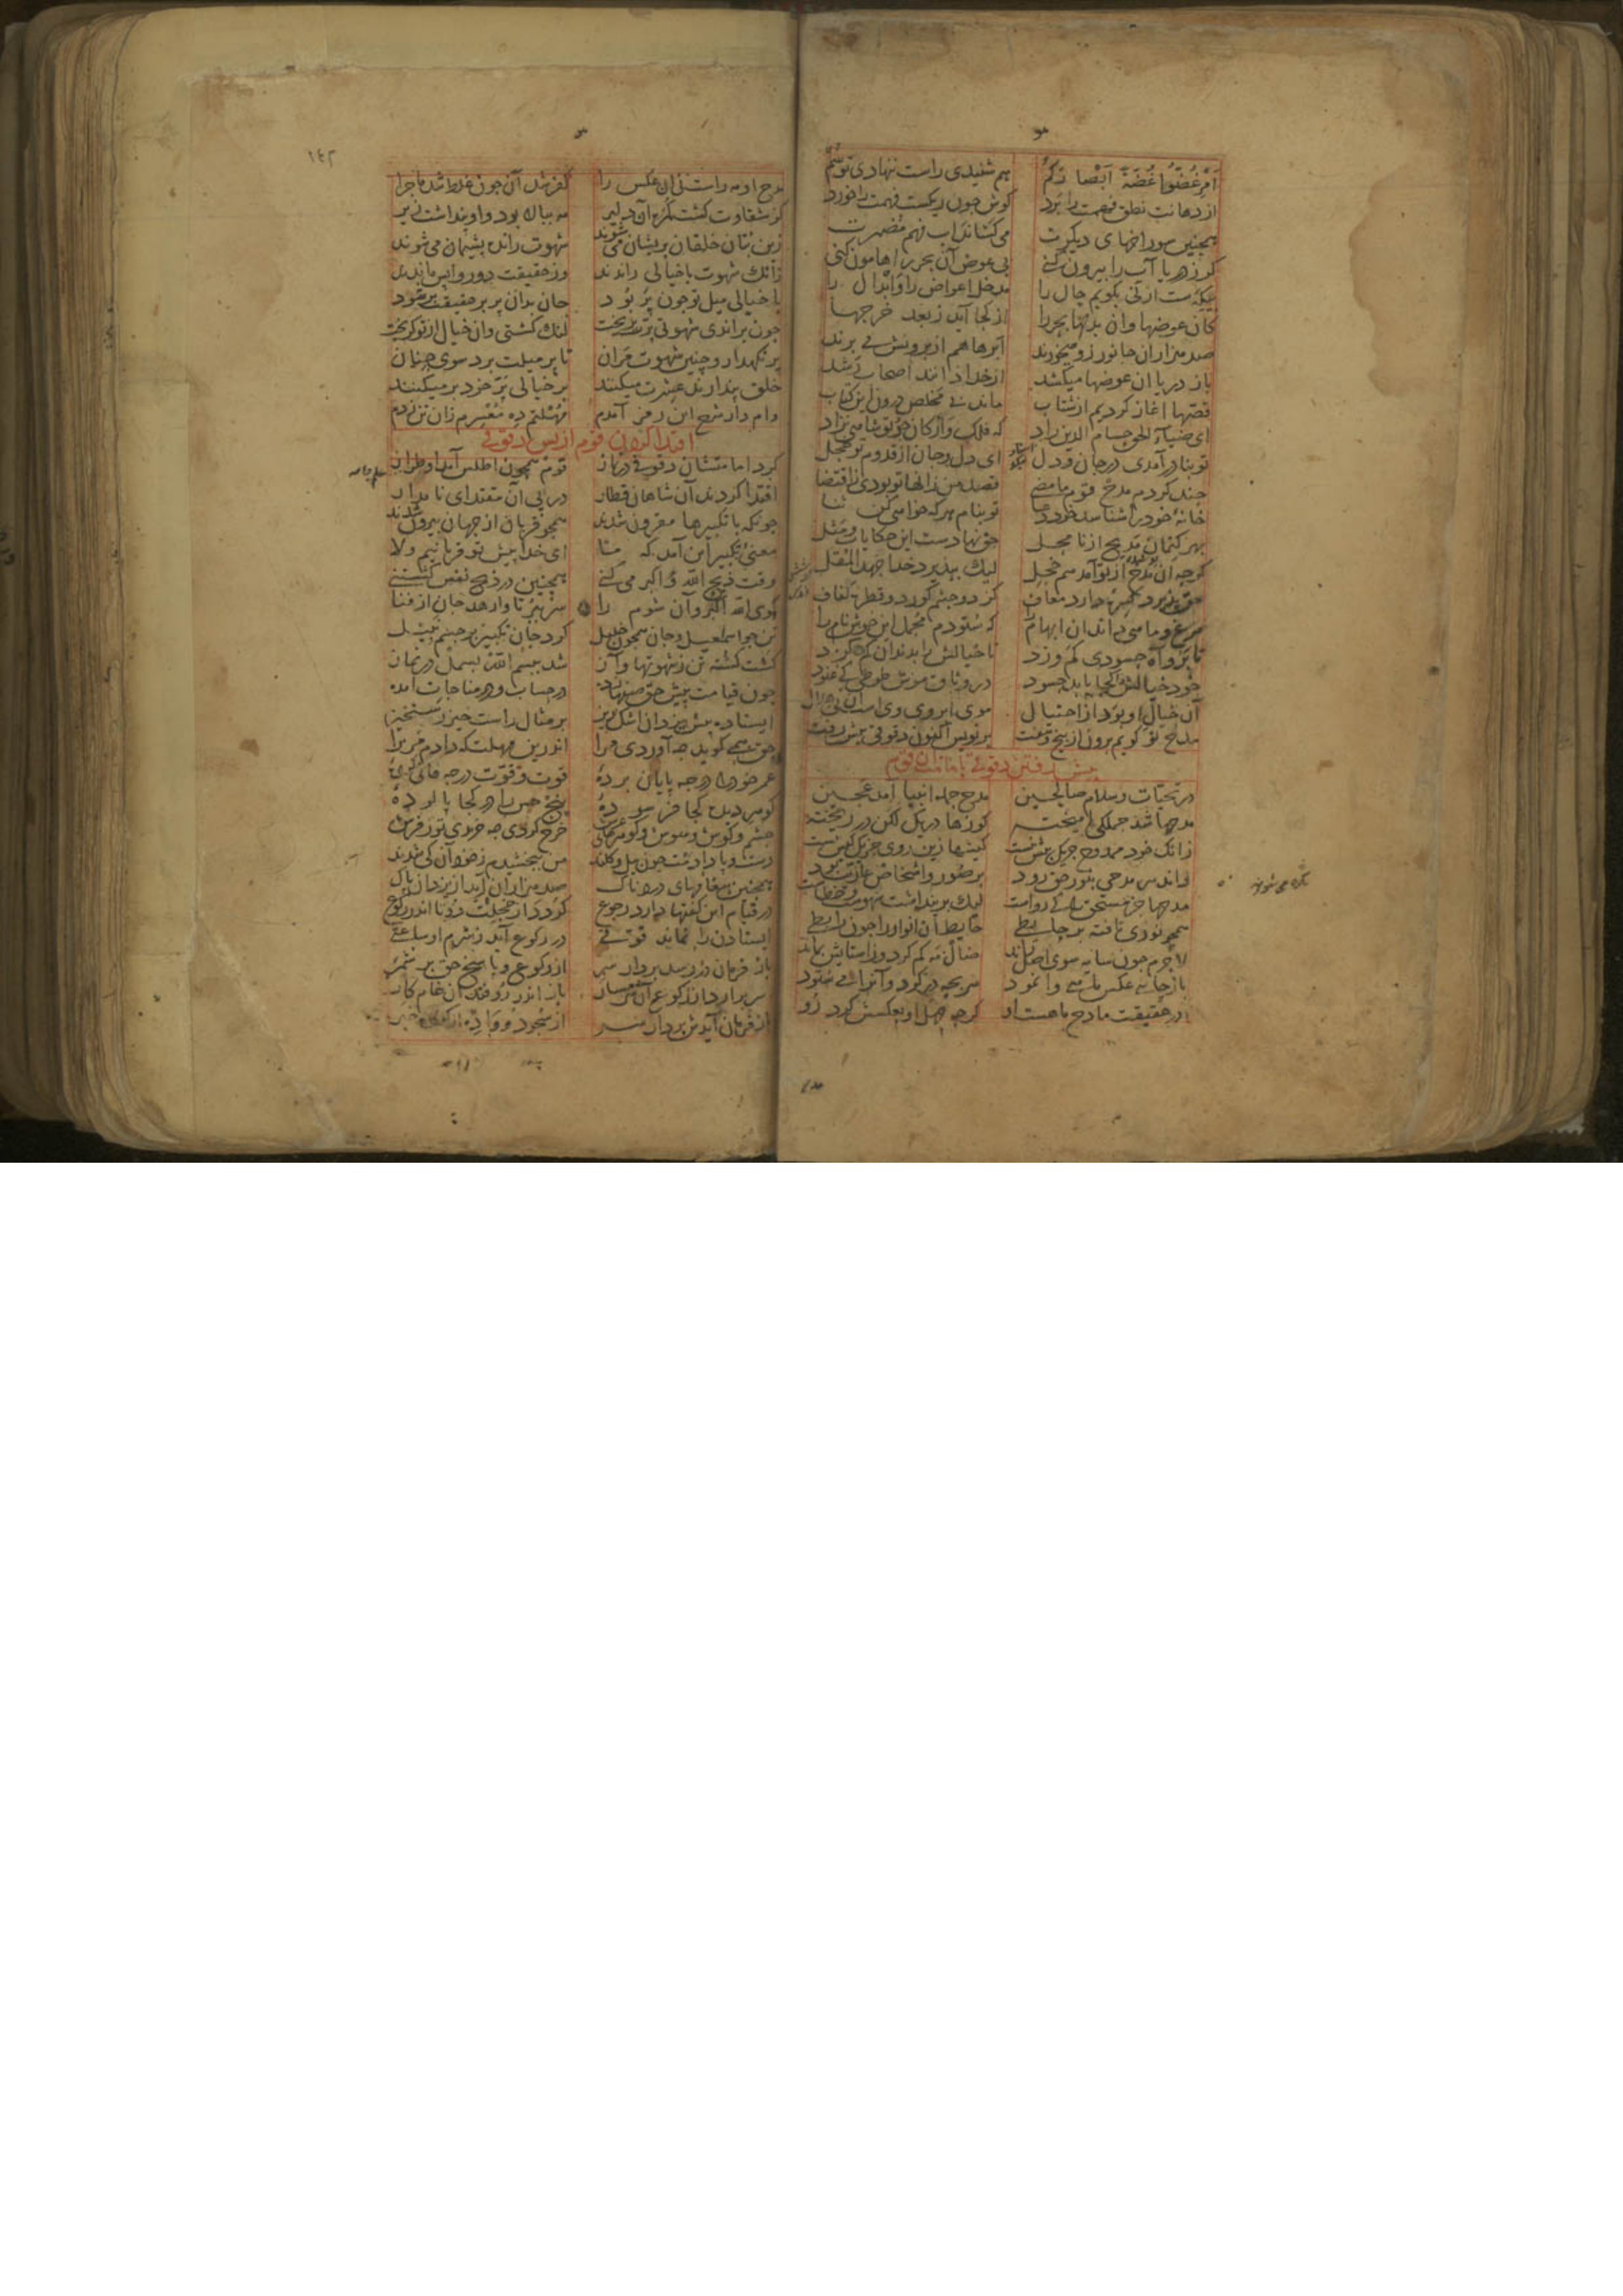 امر غضوا غضة ابصارکم    هم شنیدی راست ننهادی تو سم
از دهانت نطق فهمت را برد    کوش چون ریکست فهمت را خورد
همچنین سوراخهای دیکرت    می کشاند اب فهم مضمرت
کر ز دریا آب را بیرون کنی    بی عوض آن بحر را هامون کنی
بیکهست ار نی بکویم حال را    مدخل اعواض را و ابدال را
کان عوضها وان بدلها بحر را    از کجا آید ز بعد خرجها
صد هزاران جانور زو میخورند    ابرها هم از برونش می برند
باز دریا ان عوضها میکشد    از کجا دانند اصحاب رشد
قصها اغاز کردیم از شتاب    ماند بی مخلص درون این کتاب
ای ضیاء الحق حسام الدین راد    که فلک و ارکان چو تو شاهی نزاد
تو بنادر آمدی در جان و دل    ای دل و جان از قدوم تو خجل
چند کردم مدح قوم ما مضی    قصد من زانها تو بودی ز اقتضا
خانه خود را شناسد خود دعا    تو بنام هر که خواهی کن ثنا
بهر کتمان مدیح از نا محل    حق نهادست این حکایات و مثل
کرچه آن مدح از تو آمد هم خجل    لیک بپذیرد خدا جهد المقل
حق پذیرد کسرهٔ دارد معاف    کز دو چشم کور دو قطره کفاف
مرغ و ماهی داند ان ابهام را    که ستودم مجمل این خوش نام را
تا برو آه حسودی کم وزد    تا خیالش را بدندان کم کزد
خود خیالش را کجا یابد حسود    در وثاق موش طوطی کی غنود
آن خیال او بود از احتیال    موی ابروی وی است آن نی هلال
مدح تو کویم برون از پنج و هفت    بر نویس اکنون دقوقی پیش رفت
پیش رفتن دقوقی بامامت آن قوم
در تحیات و سلام صالحین    مدح جمله انبیا آمد عجین
مدحها شد جملکی آمیخته    کوزها در یک لکن در ریخته
زانک خود ممدوح جز یک بیش نیست    کیشها زین روی جز یک کیش نیست
دانک هر مدحی بنور حق رود    بر صور و اشخاص عاریت بود
مدحها جز مستحق را کی روا است    لیک بر پنداشت
همچو نوری تافته بر حایطی    حایط آن انوار را چون رابطی
لاجرم چون سایه سوی اصل راند    ضال مه کم کرد و ز استایش بماند
یا ز چاهی عکس ماهی وا نمود    سر بچه در کرد و آنرا می ستود
در حقیقت مادح ماهست او    کرچه جهل او بعکسش کرد رو
نکره می شوند
۱۴۲
مدح او مه راست نی آن عکس را    کفر شد آن چون غلط شد ماجرا
کز شقاوت کشت کمره آن دلیر    مه ببالا بود و او پنداشت زیر
زین بتان خلقان پریشان می شوند    شهوت رانده پشیمان می شوند
زانک شهوت با خیالی راندند    وز حقیقت دور و واپس ماندند
با خیالی میل تو چون پر بود    جان بدان پر بر حقیقت بر شود
چون براندی شهوتی پرت بریخت    لنک کشتی وان خیال از تو کریخت
پر نکهدار و چنین شهوت مران    تا پر میلت برد سوی جنان
خلق پندارند عشرت میکنند    بر خیالی پر خود بر میکنند
وام دار شرح این رمز آمدم    مهلتم ده معسرم زان تن زدم
اقتدا کردن قوم از پس دقوقی
کرد امامتشان دقوقی در نماز    قوم همچون اطلس آمد او طراز
اقتدا کردند آن شاهان قطار    در پی آن مقتدای نامدار
چونکه با تکبیرها مقرون شدند    همچو قربان از جهان بیرون شدند
معنی تکبیر این آمد که    ای خدا پیش تو قربانیم
وقت ذبح الله اکبر می کنی    همچنین در ذبح نفس کشتنی
کوی الله اکبر وآن شوم را    سر ببر تا وا رهد جان از فنا
تن چو اسمعیل و جان همچون خلیل    کرد جان تکبیر بر جسم نبیل
کشت کشته تن ز شهوتها و آز    شد ببسم الله بسمل در نماز
چون قیامت پیش حق صفها زده    در حساب و در مناجات آمده
ایستاده پیش یزدان اشک ریز    بر مثال راست خیز رستخیز
حق همی کوید چه آوردی مرا    اندرین مهلت که دادم من ترا
عمر خود را در چه پایان بردهٔ    قوت و قوت در چه فانی کردهٔ
کوهر دیده کجا فرسودهٔ    پنج حس را در کجا پالودهٔ
چشم و کوش و هوش و کوهرهای عرش    خرج کردی چه خریدی تو ز فرش
دست و پا دادمت چون بیل و کلند    من ببخشیدم ز خود آن کی شدند
همچنین پیغامهای دردناک    صد هزاران آید از یزدان پاک
در قیام این کفتها دارد رجوع    وز خجالت شد دوتا اندر رکوع
ایستادن را نماند قوتی    در رکوع آید ز شرم او ساعتی
باز فرمان در رسد بردار سر    از رکوع و پاسخ حق بر شمر
سر برآرد از رکوع آن شرمسار    باز اندر رو فتد آن خام کار
باز فرمان آیدش بردار سر    از سجود و وا ده از کرده خبر